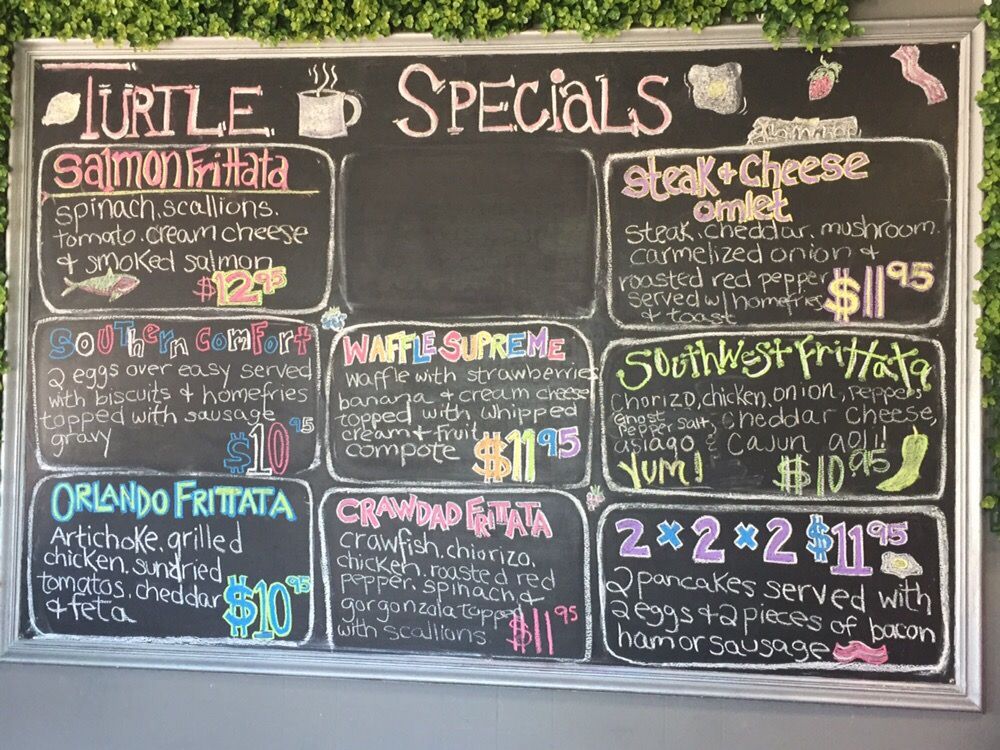 TURTLE SPECIALS
Salmon Frittata
spinach, scallions,
tomato, cream cheese
& smoked salmon
$12.95
Steak + Cheese
omlet
steak, cheddar, mushroom,
carmelized onion &
roasted red pepper
served w/ homefries
& toast
$11.95
Southern Comfort
2 eggs over easy served
with biscuits & homefries
topped with sausage
gravy
$10.95
WAFFLE SUPREME
waffle with strawberries
banana & cream cheese
topped with whipped
cream & fruit
compote
$11.95
Southwest Frittata
Chorizo, chicken, onion, peppers,
ghost pepper salt, cheddar cheese,
asiago & Cajun aoli!
Yum!
$10.95
ORLANDO FRITTATA
Artichoke, grilled
chicken, sundried
tomatos, cheddar
& feta
$10.95
CRAWDAD FRITTATA
crawfish, chiorizo,
chicken, roasted red
pepper, spinach, &
gorgonzala topped
with scallions
$11.95
2 x 2 x 2 $11.95
2 pancakes served with
2 eggs & 2 pieces of bacon
ham or sausage